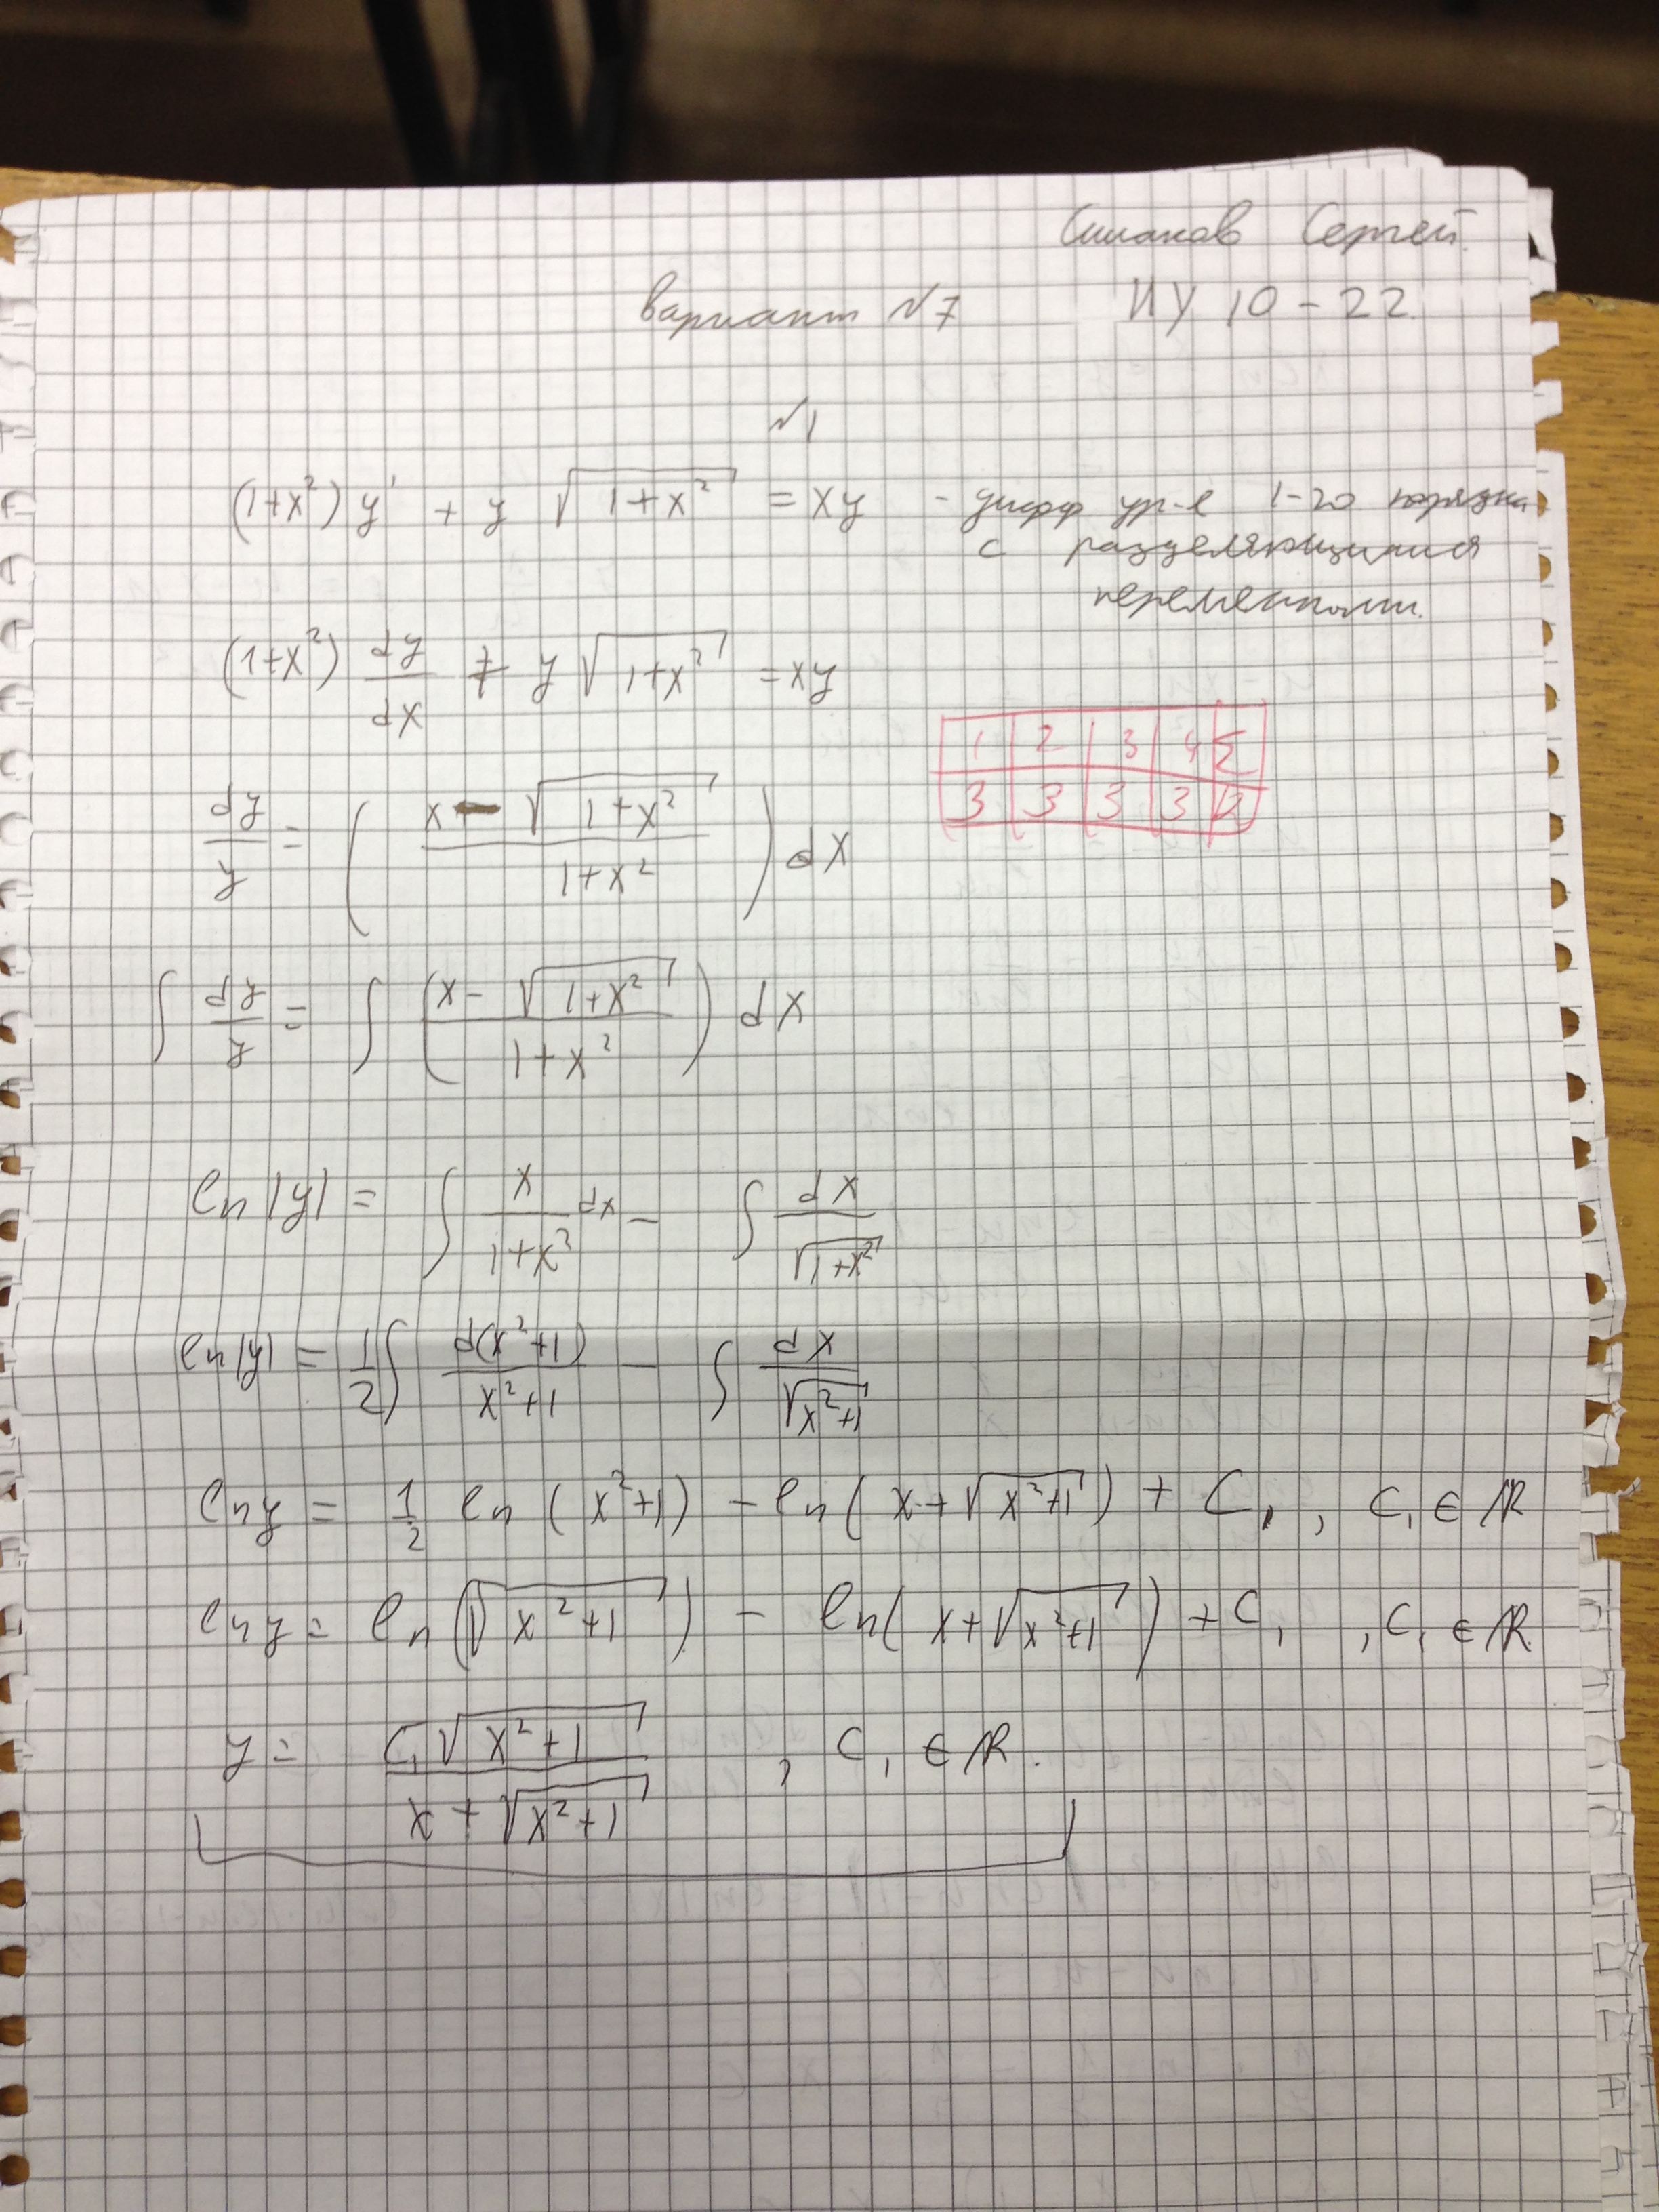 Симаков Сергей.
вариант №7 ИУ 10-22.
№1
(1+x²)y' + y√(1+x²) = xy - дифф ур-е 1-го порядка
с разделяющимися
переменными.
(1+x²) dy/dx + y√(1+x²) = xy
1 2 3 4 Σ
3 3 3 3 12
dy/y = ((x - √(1+x²))/(1+x²)) dx
∫ dy/y = ∫ ((x - √(1+x²))/(1+x²)) dx
ln|y| = ∫ x/(1+x²) dx - ∫ dx/√(1+x²)
ln|y| = 1/2 ∫ d(x²+1)/(x²+1) - ∫ dx/√(x²+1)
ln y = 1/2 ln(x²+1) - ln(x+√(x²+1)) + C₁, C₁ ∈ ℝ
ln y = ln(√(x²+1)) - ln(x+√(x²+1)) + C₁, C₁ ∈ ℝ
y = C₁√(x²+1)/(x+√(x²+1)), C₁ ∈ ℝ.